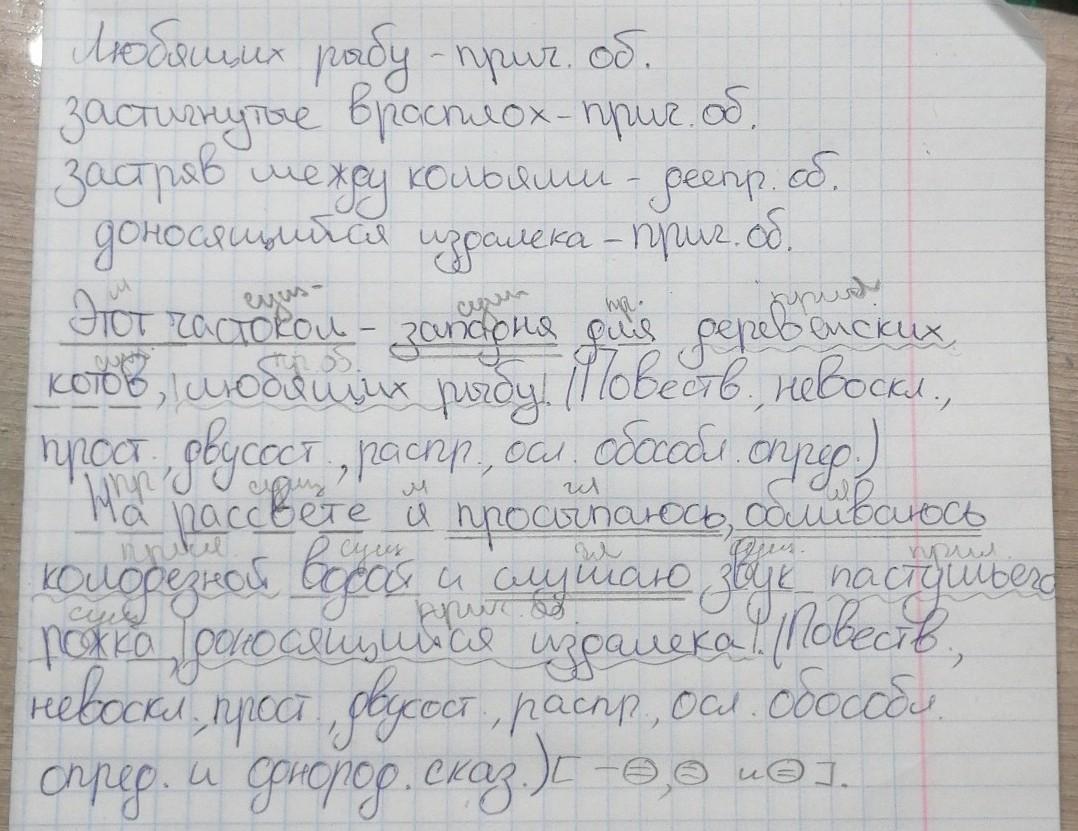 Любящих рыбу - прич. об.
застигнутые врасплох - прич. об.
застряв между кольями - деепр. об.
доносящийся издалека - прич. об.
м сущ. сущ. пр. прилаг.
Этот частокол - западня для деревенских
сущ. пр. об.
котов, |любящих рыбу|. (Повеств., невоскл.,
прост., двусост., распр., осл. обособл. опред.)
пр. сущ. м гл
На рассвете я просыпаюсь, обливаюсь
прил. сущ гл сущ. прил.
колодезной водой и слушаю звук пастушьего
сущ прич. об
рожка, |доносящийся издалека|. (Повеств.,
невоскл., прост., двусост., распр., осл. обособл.
опред. и однород. сказ.) [ - =, = и = ].